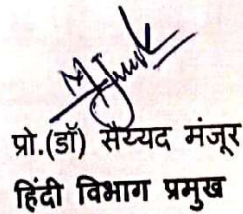 प्रो.(डॉ) सैय्यद मंजूर
हिंदी विभाग प्रमुख